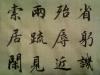 省躬譏
殆辱近
兩疏見
索居閒